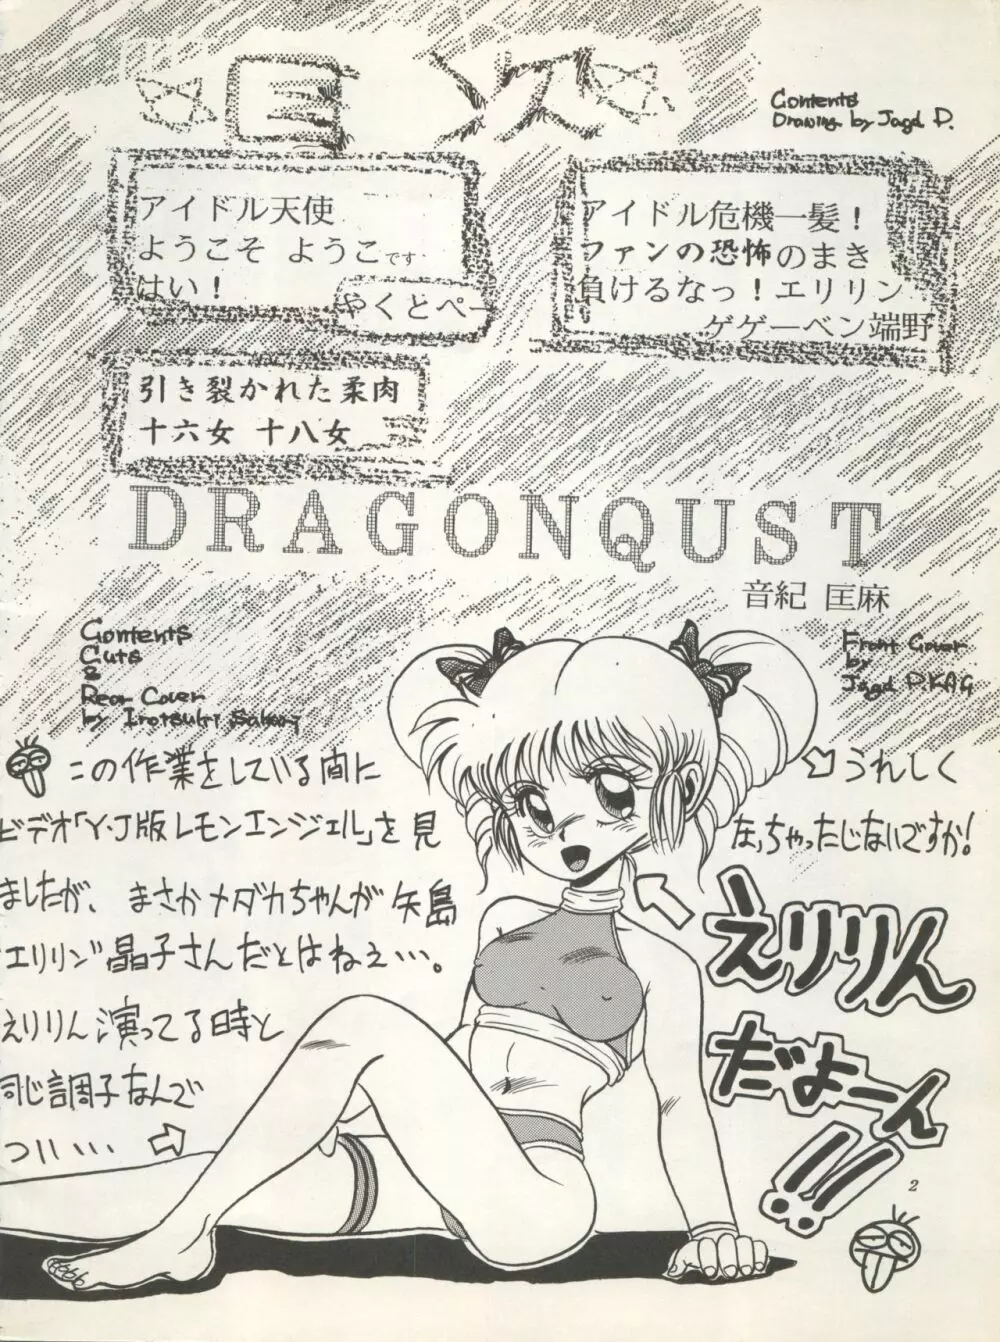 目次
Contents
Drawing by Jagd D.
アイドル天使
ようこそ ようこです
はい！
やくとぺー
アイドル危機一髪！
ファンの恐怖のまき
負けるなっ！エリリン
ゲゲーベン端野
引き裂かれた柔肉
十六女 十八女
DRAGONQUST
音紀 匡麻
Contents
Cuts
&
Rear Cover
by Irotsuki
Front Cover
by
Jagd D.KAG
この作業をしている間に
ビデオ「Y・J版レモンエンジェル」を見
ましたが、まさかメダカちゃんが矢島
エリリン晶子さんだとはねえ…。
えりりん演ってる時と
同じ調子なんで
つい…
うれしく
なっちゃったじないですか！
えりりん
だよーん
!!
2